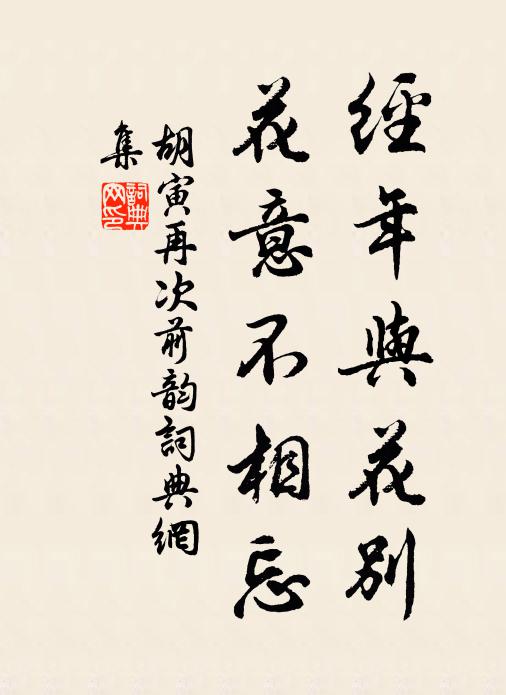 經年與花別
花意不相忘
胡寅再次前韵詞典網
集
詞典
网印